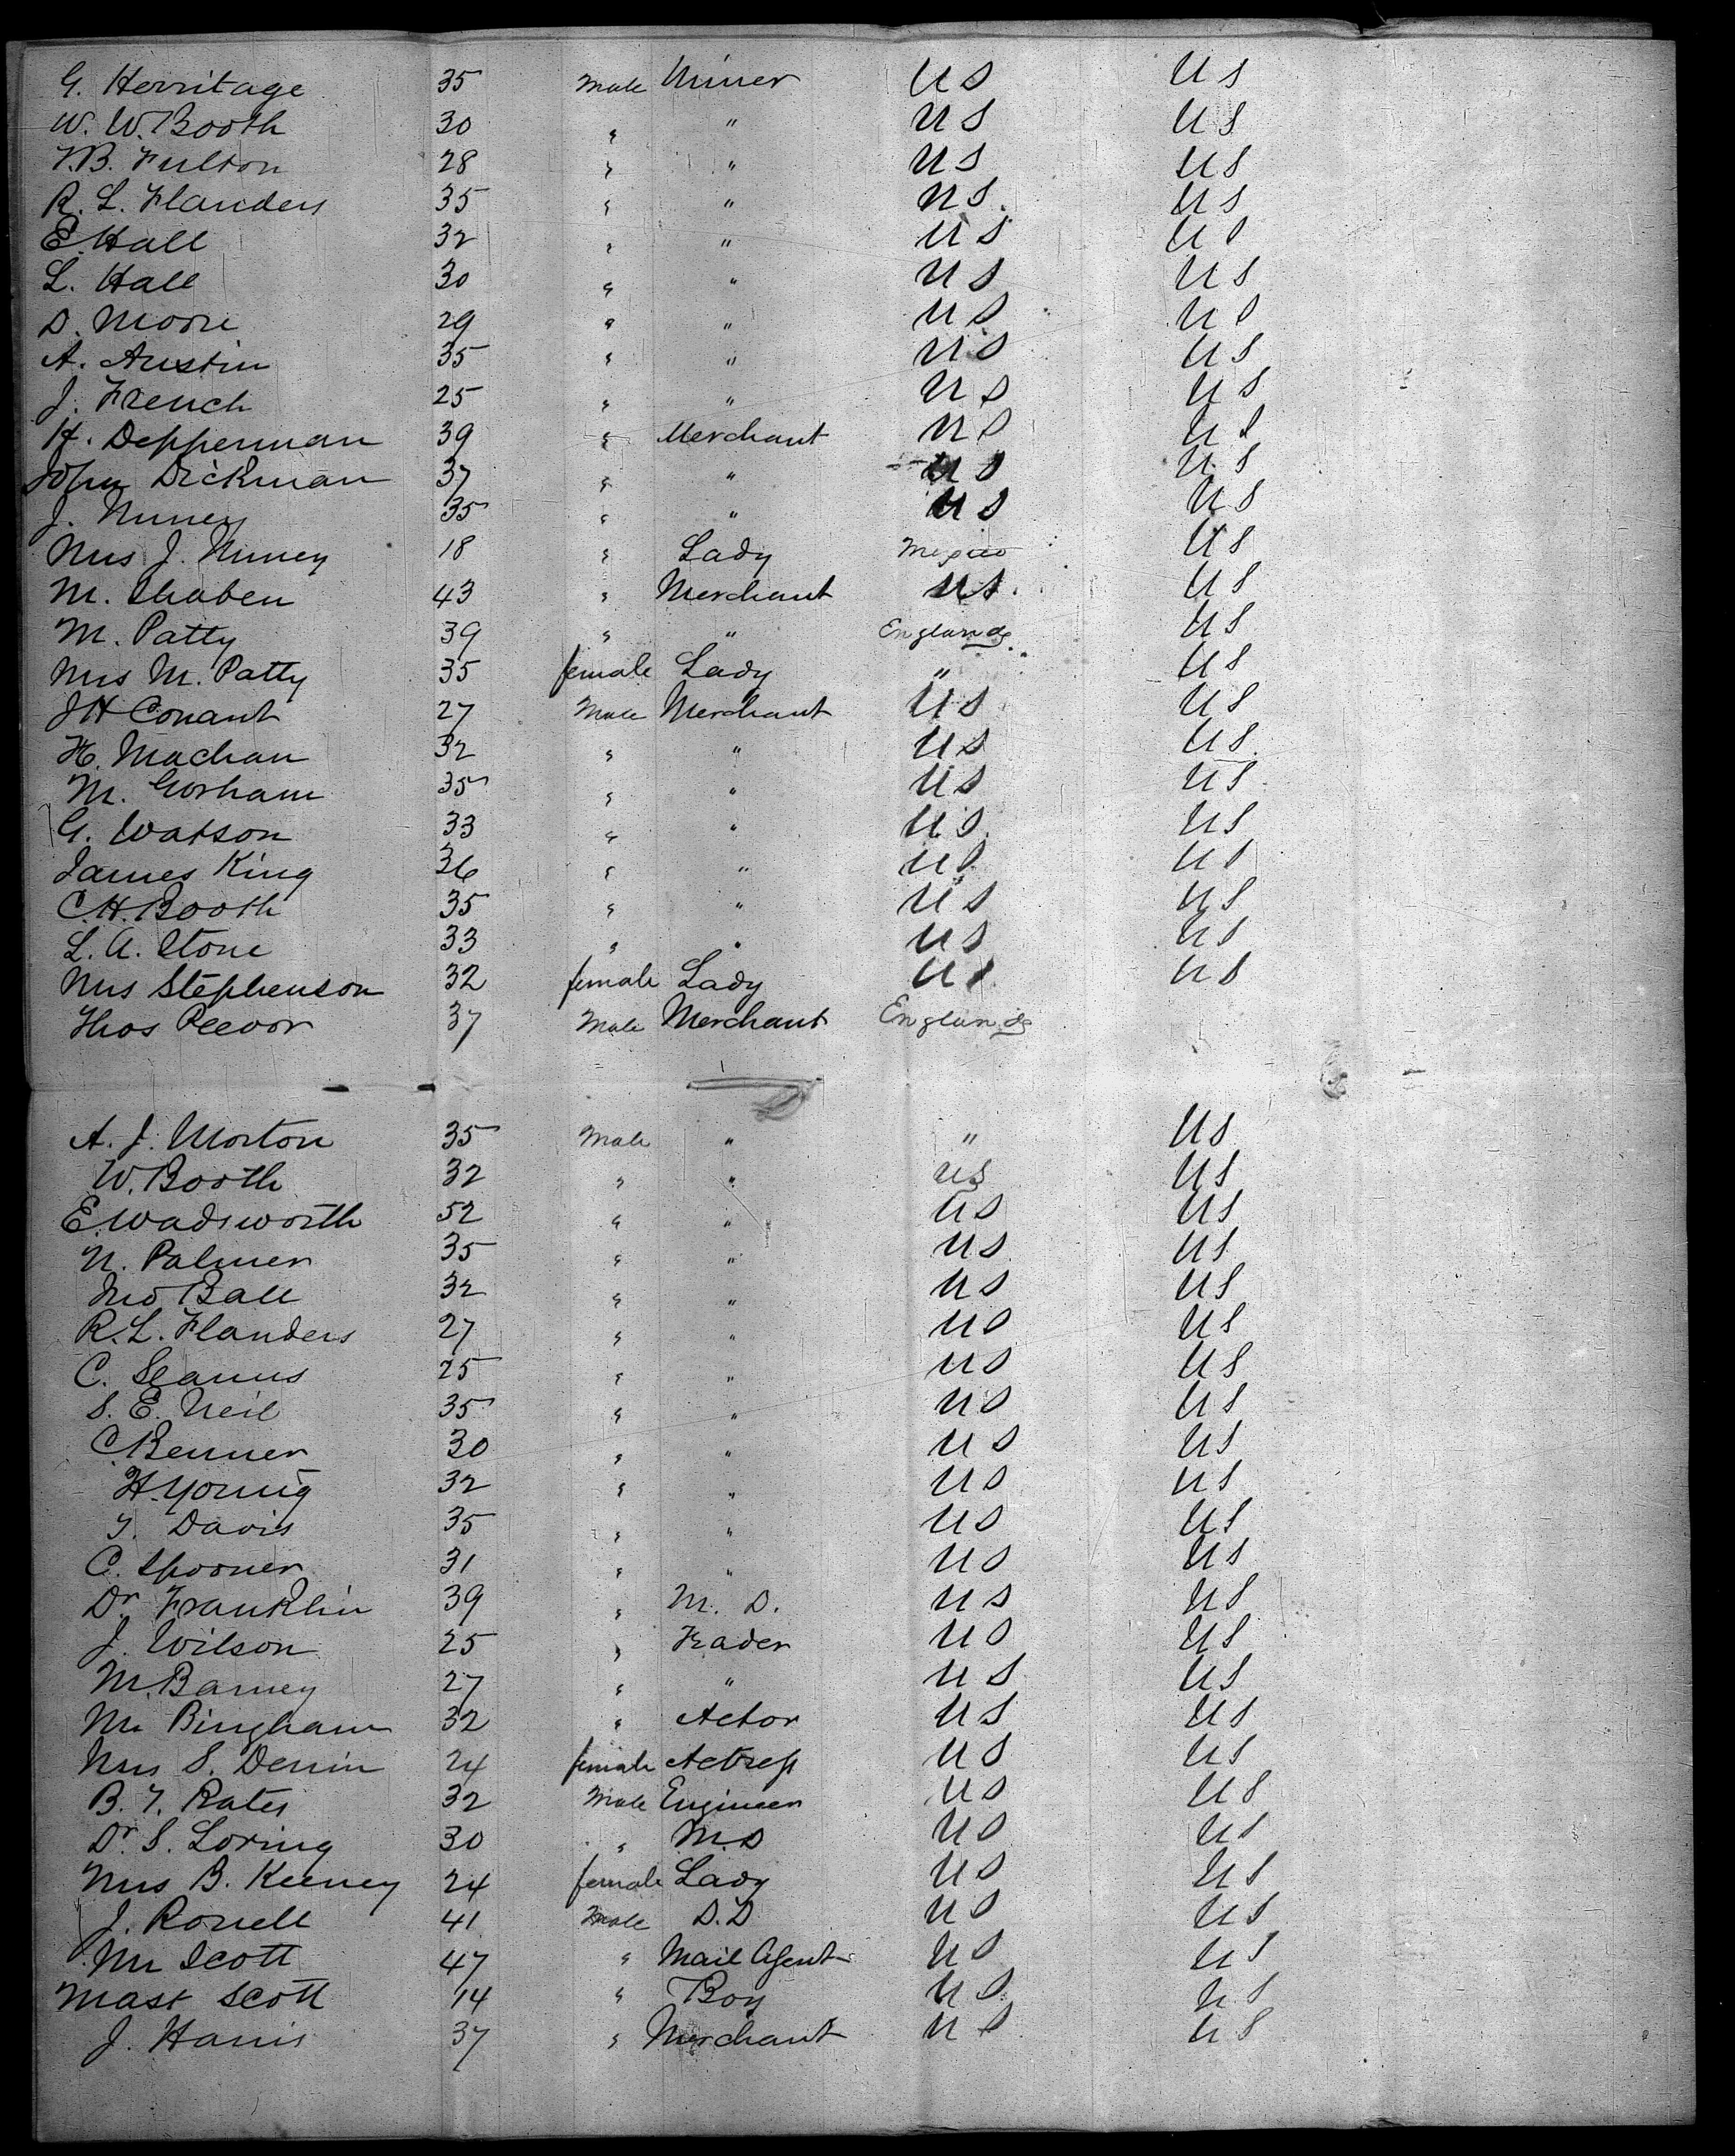 G. Herritage 35 Male Miner US US
W. W. Booth 30 " " US US
T.B. Fulton 28 " " US US
R. L. Flanders 35 " " US. US
E Hall 32 " " US US
L. Hall 30 " " US US
D. Moore 29 " " US US
A. Austin 35 " " US US
J. French 25 " " US US
H. Depperman 39 " Merchant US US
John Dickman 37 " " US US
J. Nuney 35 " " US US
Mrs J. Nuney 18 " Lady Mexico US
M. Shaben 43 " Merchant US. US
M. Patty 39 " " England US
Mrs M. Patty 35 female Lady " US
J H Conant 27 Male Merchant US US
H. Machan 32 " " US US
M. Gorham 35 " " US US
G. Watson 33 " " US US
James King 36 " " US US
C.H. Booth 35 " " US US
L. A. Stone 33 " " US US
Mrs Stephenson 32 female Lady US US
Thos Reevor 37 Male Merchant England
A. J. Morton 35 Male " " US
W. Booth 32 " " US US
E. Wadsworth 52 " " US US
N. Palmer 35 " " US US
Jno Ball 32 " " US US
R. L. Flanders 27 " " US US
C. Seamus 25 " " US US
S. E. Neil 35 " " US US
C. Benner 30 " " US US
H. Young 32 " " US US
T. Davis 35 " " US US
C. Spooner 31 " " US US
Dr Franklin 39 " M. D. US US
J. Wilson 25 " Trader US US
M. Barney 27 " " US US
Mr Bingham 32 " Actor US US
Mrs S. Denin 24 female Actress US US
B. T. Bates 32 Male Engineer US US
Dr S. Loring 30 " M.D US US
Mrs B. Keeney 24 female Lady US US
J. Rowell 41 Male D.D US US
Mr Scott 47 " Mail Agent US US
Mast Scott 14 " Boy US US
J. Harris 37 " Merchant US US